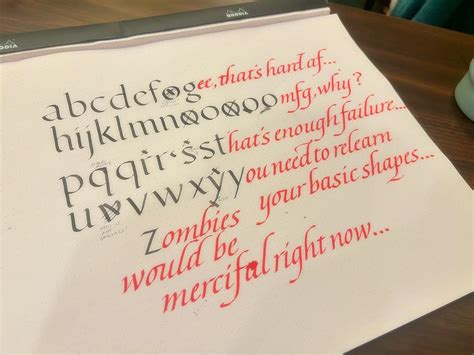 RHODIA
abcdefogec, that's hard af...
hijklmnooooo mfg, why?
pqqrr·s·sthat's enough failure...
uvvwxyyou need to relearn
Zombies your basic shapes...
would be
merciful right now...